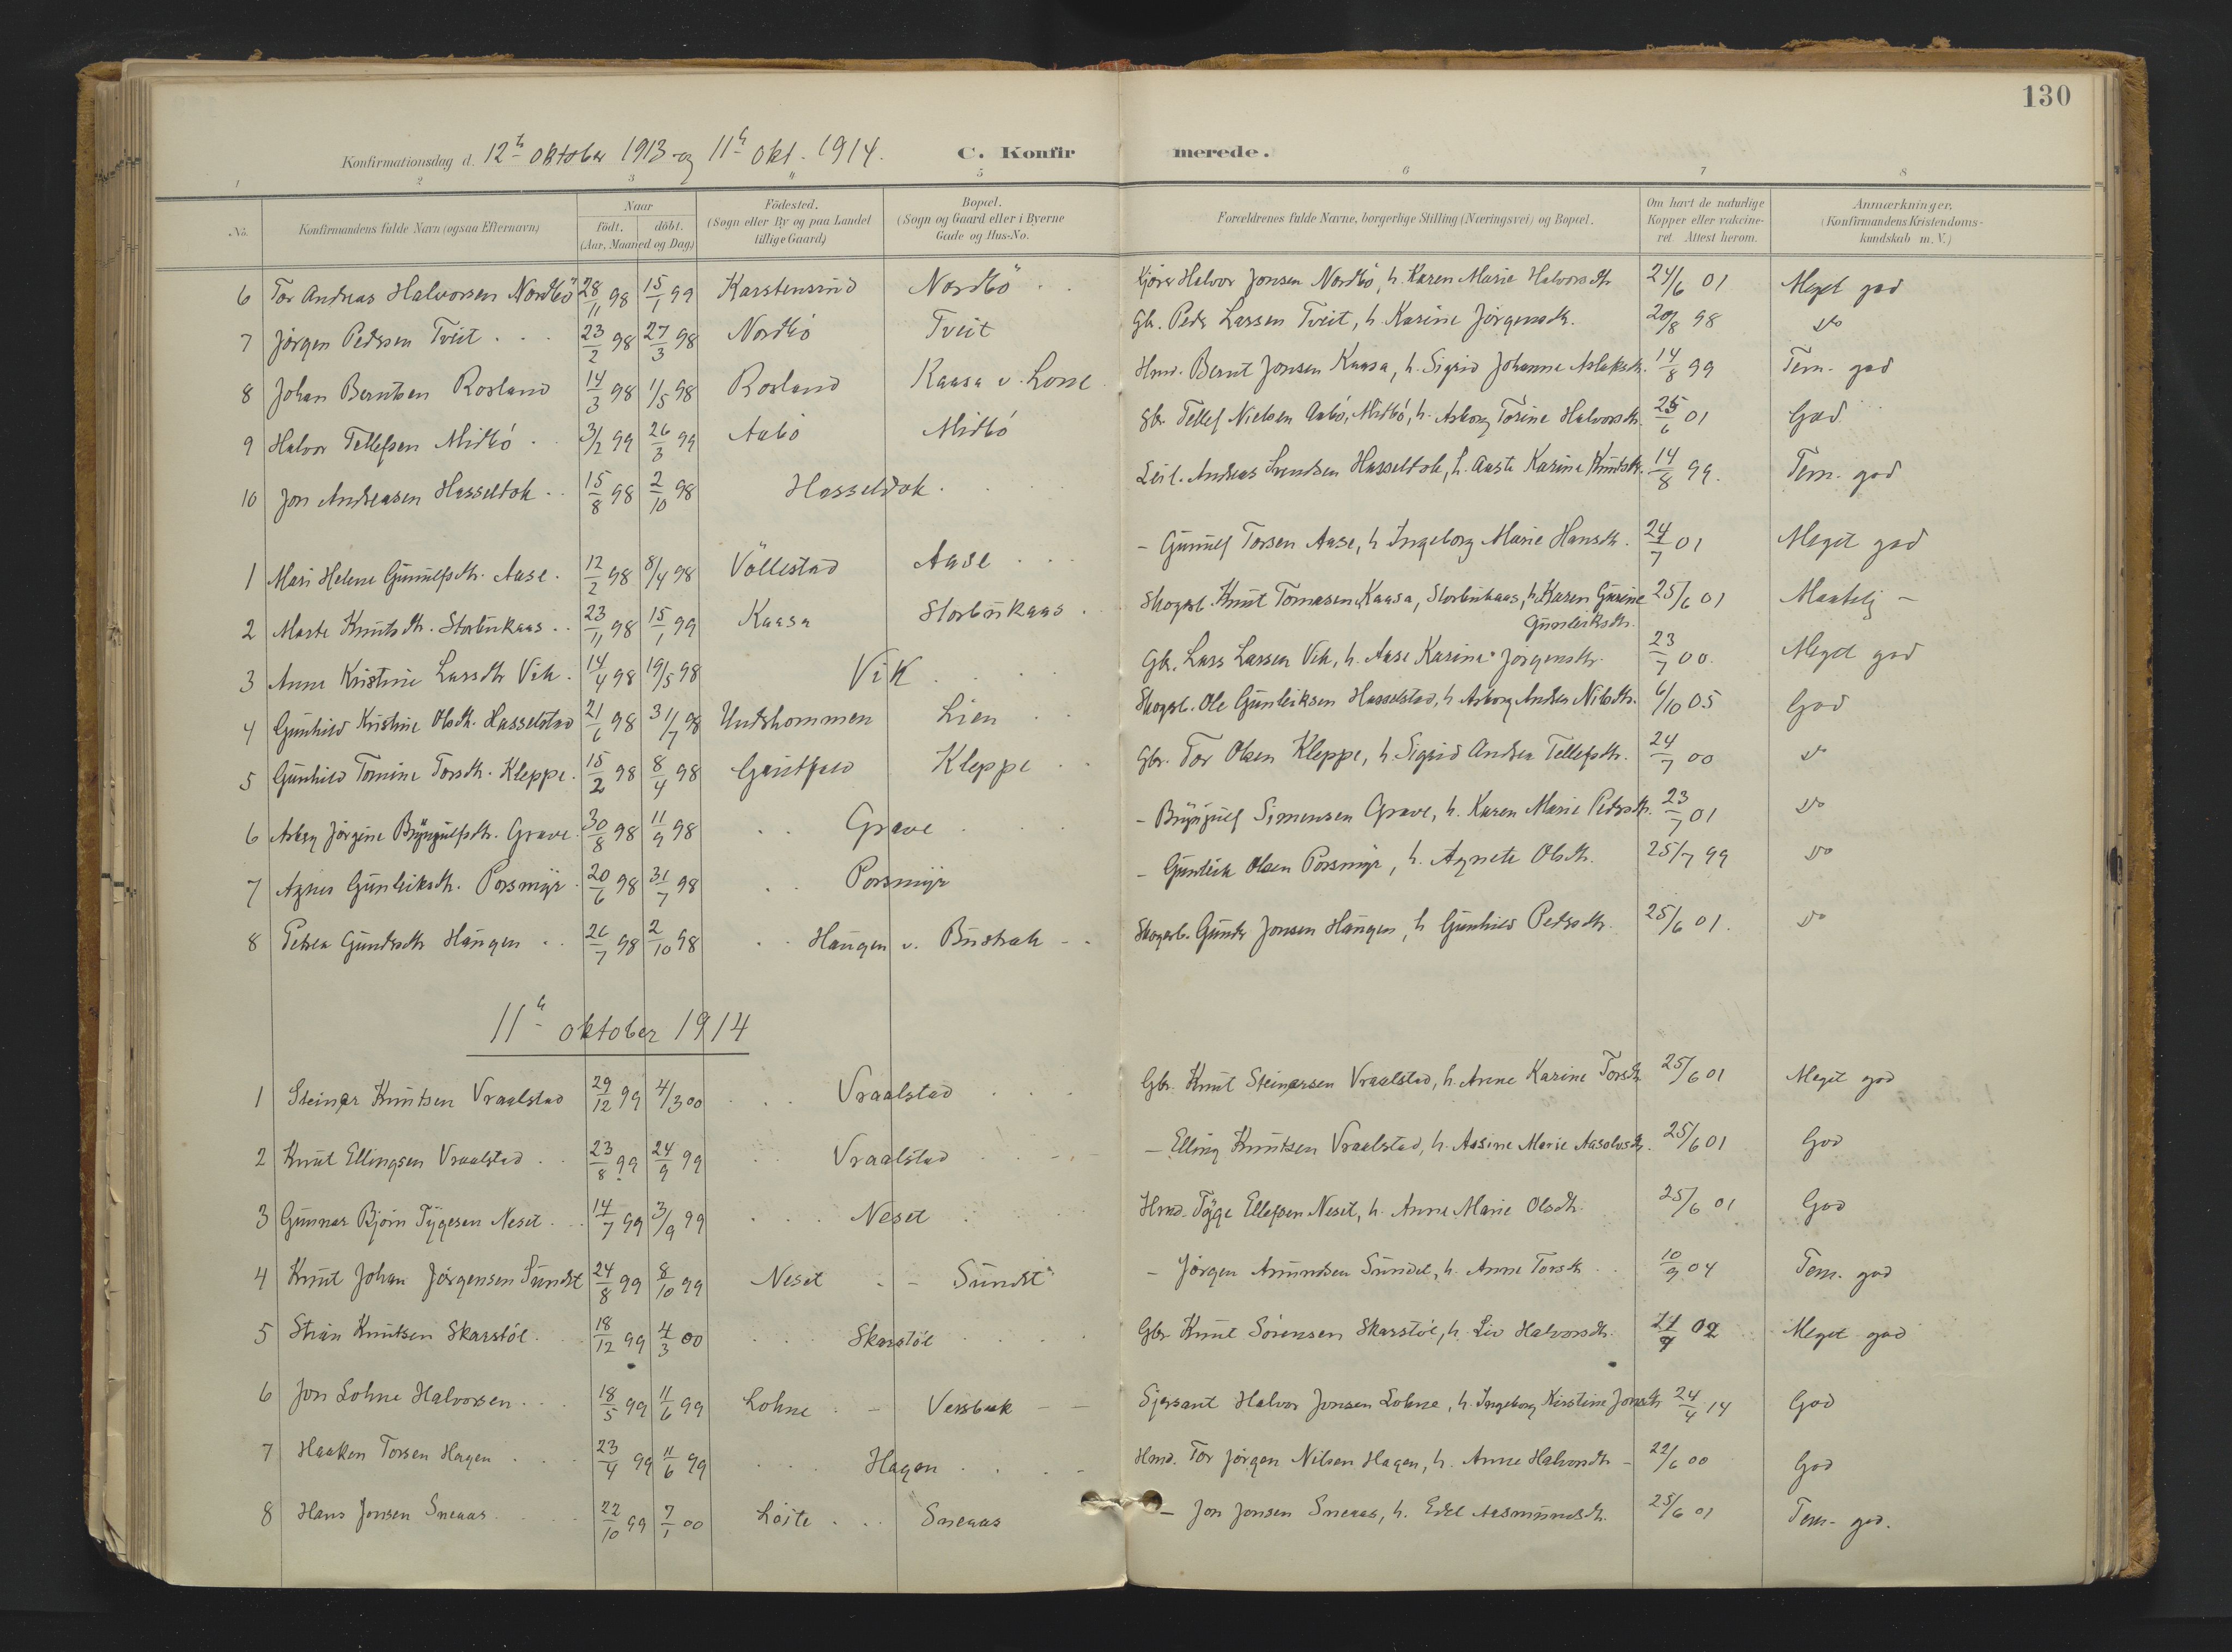 130
Konfirmationsdag d. 12te oktober 1913 og 11te okt. 1914. C. Konfirmerede.
1 2 3 4 5 6 7 8
No. Konfirmandens fulde Navn (ogsaa Efternavn) Naar födt. döbt. (Aar, Maaned og Dag) Födested. (Sogn eller By og paa Landet tillige Gaard) Bopæl. (Sogn og Gaard eller i Byerne Gade og Hus-No. Forældrenes fulde Navne, borgerlige Stilling (Næringsvei) og Bopæl. Om havt de naturlige Kopper eller vakcineret. Attest herom. Anmærkninger. (Konfirmandens Kristendomskundskab m. V.)
6 Tor Andreas Halvorsen Nordbö 28/11 98 15/1 99 Karstensrud Nordbö Kjörer Halvor Jonsen Nordbö, h. Karen Marie Halvorsdtr 24/6 01 Meget god
7 Jörgen Pedersen Tveit 23/2 98 27/3 98 Nordbö Tveit Gbr. Peder Larssen Tveit, h. Karine Jörgensdtr. 20/8 98 Do
8 Johan Berntsen Rosland 14/3 98 1/5 98 Rosland Kaasa u. Lone Hmd. Bernt Jonsen Kaasa, h. Sigrid Johanne Aslaksdtr. 14/8 99 Tem. god
9 Halvor Tellefsen Midbö 3/2 99 26/3 99 Aabö Midbö Gbr Tellef Nielsen Aabö, Midbö, h. Asborg Torine Halvorsdtr. 25/6 01 God
10 Jon Andreasen Hasseldok 15/8 98 2/10 98 Hasseldok Leil. Andreas Svendsen Hasseldok, h. Aaste Karine Knudsdtr. 14/8 99. Tem. god
1 Mari Helene Gunnulfsdtr. Aase. 12/2 98 8/4 98 Völlestad Aase - Gunnulf Torsen Aase, h Ingeborg Marie Hansdtr. 24/7 01 Meget god
2 Marte Knutsdtr. Storbukaas 23/11 98 15/1 99 Kaasa Storbukaas Skogarb. Knut Tomasen Kaasa, Storbukaas, h. Karen Gurine Gunleiksdtr. 25/6 01 Maatelig -
3 Anne Kristine Larsdtr Vik 14/4 98 19/5 98 Vik Gbr. Lars Larsen Vik, h. Aase Karine Jörgensdtr. 23/7 00. Meget god
4 Gunhild Kristine Olsdtr. Hasselstad 21/6 98 31/7 98 Undshommen Lien Skogarb. Ole Gunleiksen Hasselstad, h Asborg Andrea Nilsdtr. 6/10 05 God
5 Gunhild Tomine Torsdtr. Kleppe. 15/2 98 8/4 98 Gautfald Kleppe Gbr. Tor Olsen Kleppe, h. Sigrid Andrea Tellefsdtr. 24/7 00 Do
6 Asborg Jörgine Brynjulfsdtr. Grave 30/8 98 11/9 98 Grave - Brynjulf Simensen Grave, h. Karen Marie Pedersdtr. 23/7 01 Do
7 Agnes Gunleiksdtr. Porsmyr 20/6 98 31/7 98 Porsmyr - Gunleik Olsen Porsmyr, h. Agnete Olsdtr. 25/7 99 Do
8 Petrea Gundersdtr Haugen 26/7 98 2/10 98 Haugen u. Bustrak Skogarb. Gunder Jonsen Haugen, h Gunhild Pedersdtr. 25/6 01. Do
11te oktober 1914
1 Steinar Knutsen Vraalstad 29/12 99 4/3 00 Vraalstad Gbr. Knut Steinarsen Vraalstad, h. Anne Karine Torsdtr 25/6 01 Meget god
2 Knut Ellingsen Vraalstad 23/8 99 24/9 99 Vraalstad - Elling Knutsen Vraalstad, h. Aasine Marie Aasolvsdtr. 25/6 01 God
3 Gunnar Björn Tygesen Neset 14/7 99 3/9 99 Neset Hmd. Tyge Ellefsen Neset, h. Anne Marie Olsdtr. 25/6 01 God
4 Knut Johan Jörgensen Sundet 24/8 99 8/10 99 Neset Sundet - Jörgen Amundsen Sundet, h. Anne Torsdtr 10/9 04 Tem. god
5 Stian Knutsen Skarstöl 18/12 99 4/3 00 Skarstöl Gbr Knut Sörensen Skarstöl, h. Liv Halvorsdtr. 02 Meget god
6 Jon Lohne Halvorsen 18/5 99 11/6 99 Lohne Versbæk Sjersant Halvor Jonsen Lohne, h. Ingeborg Kirstine Jonsdtr 24/4 14 God
7 Haaken Torsen Hagen 23/4 99 11/6 99 Hagen Hmd. Tor Jörgen Nilsen Hagen, h. Anne Halvorsdtr - 22/6 00 God
8 Hans Jonsen Sneaas 22/10 99 7/1 00 Löite Sneaas - Jon Jonsen Sneaas, h. Edel Aasmundsdtr. 25/6 01 Tem. god.